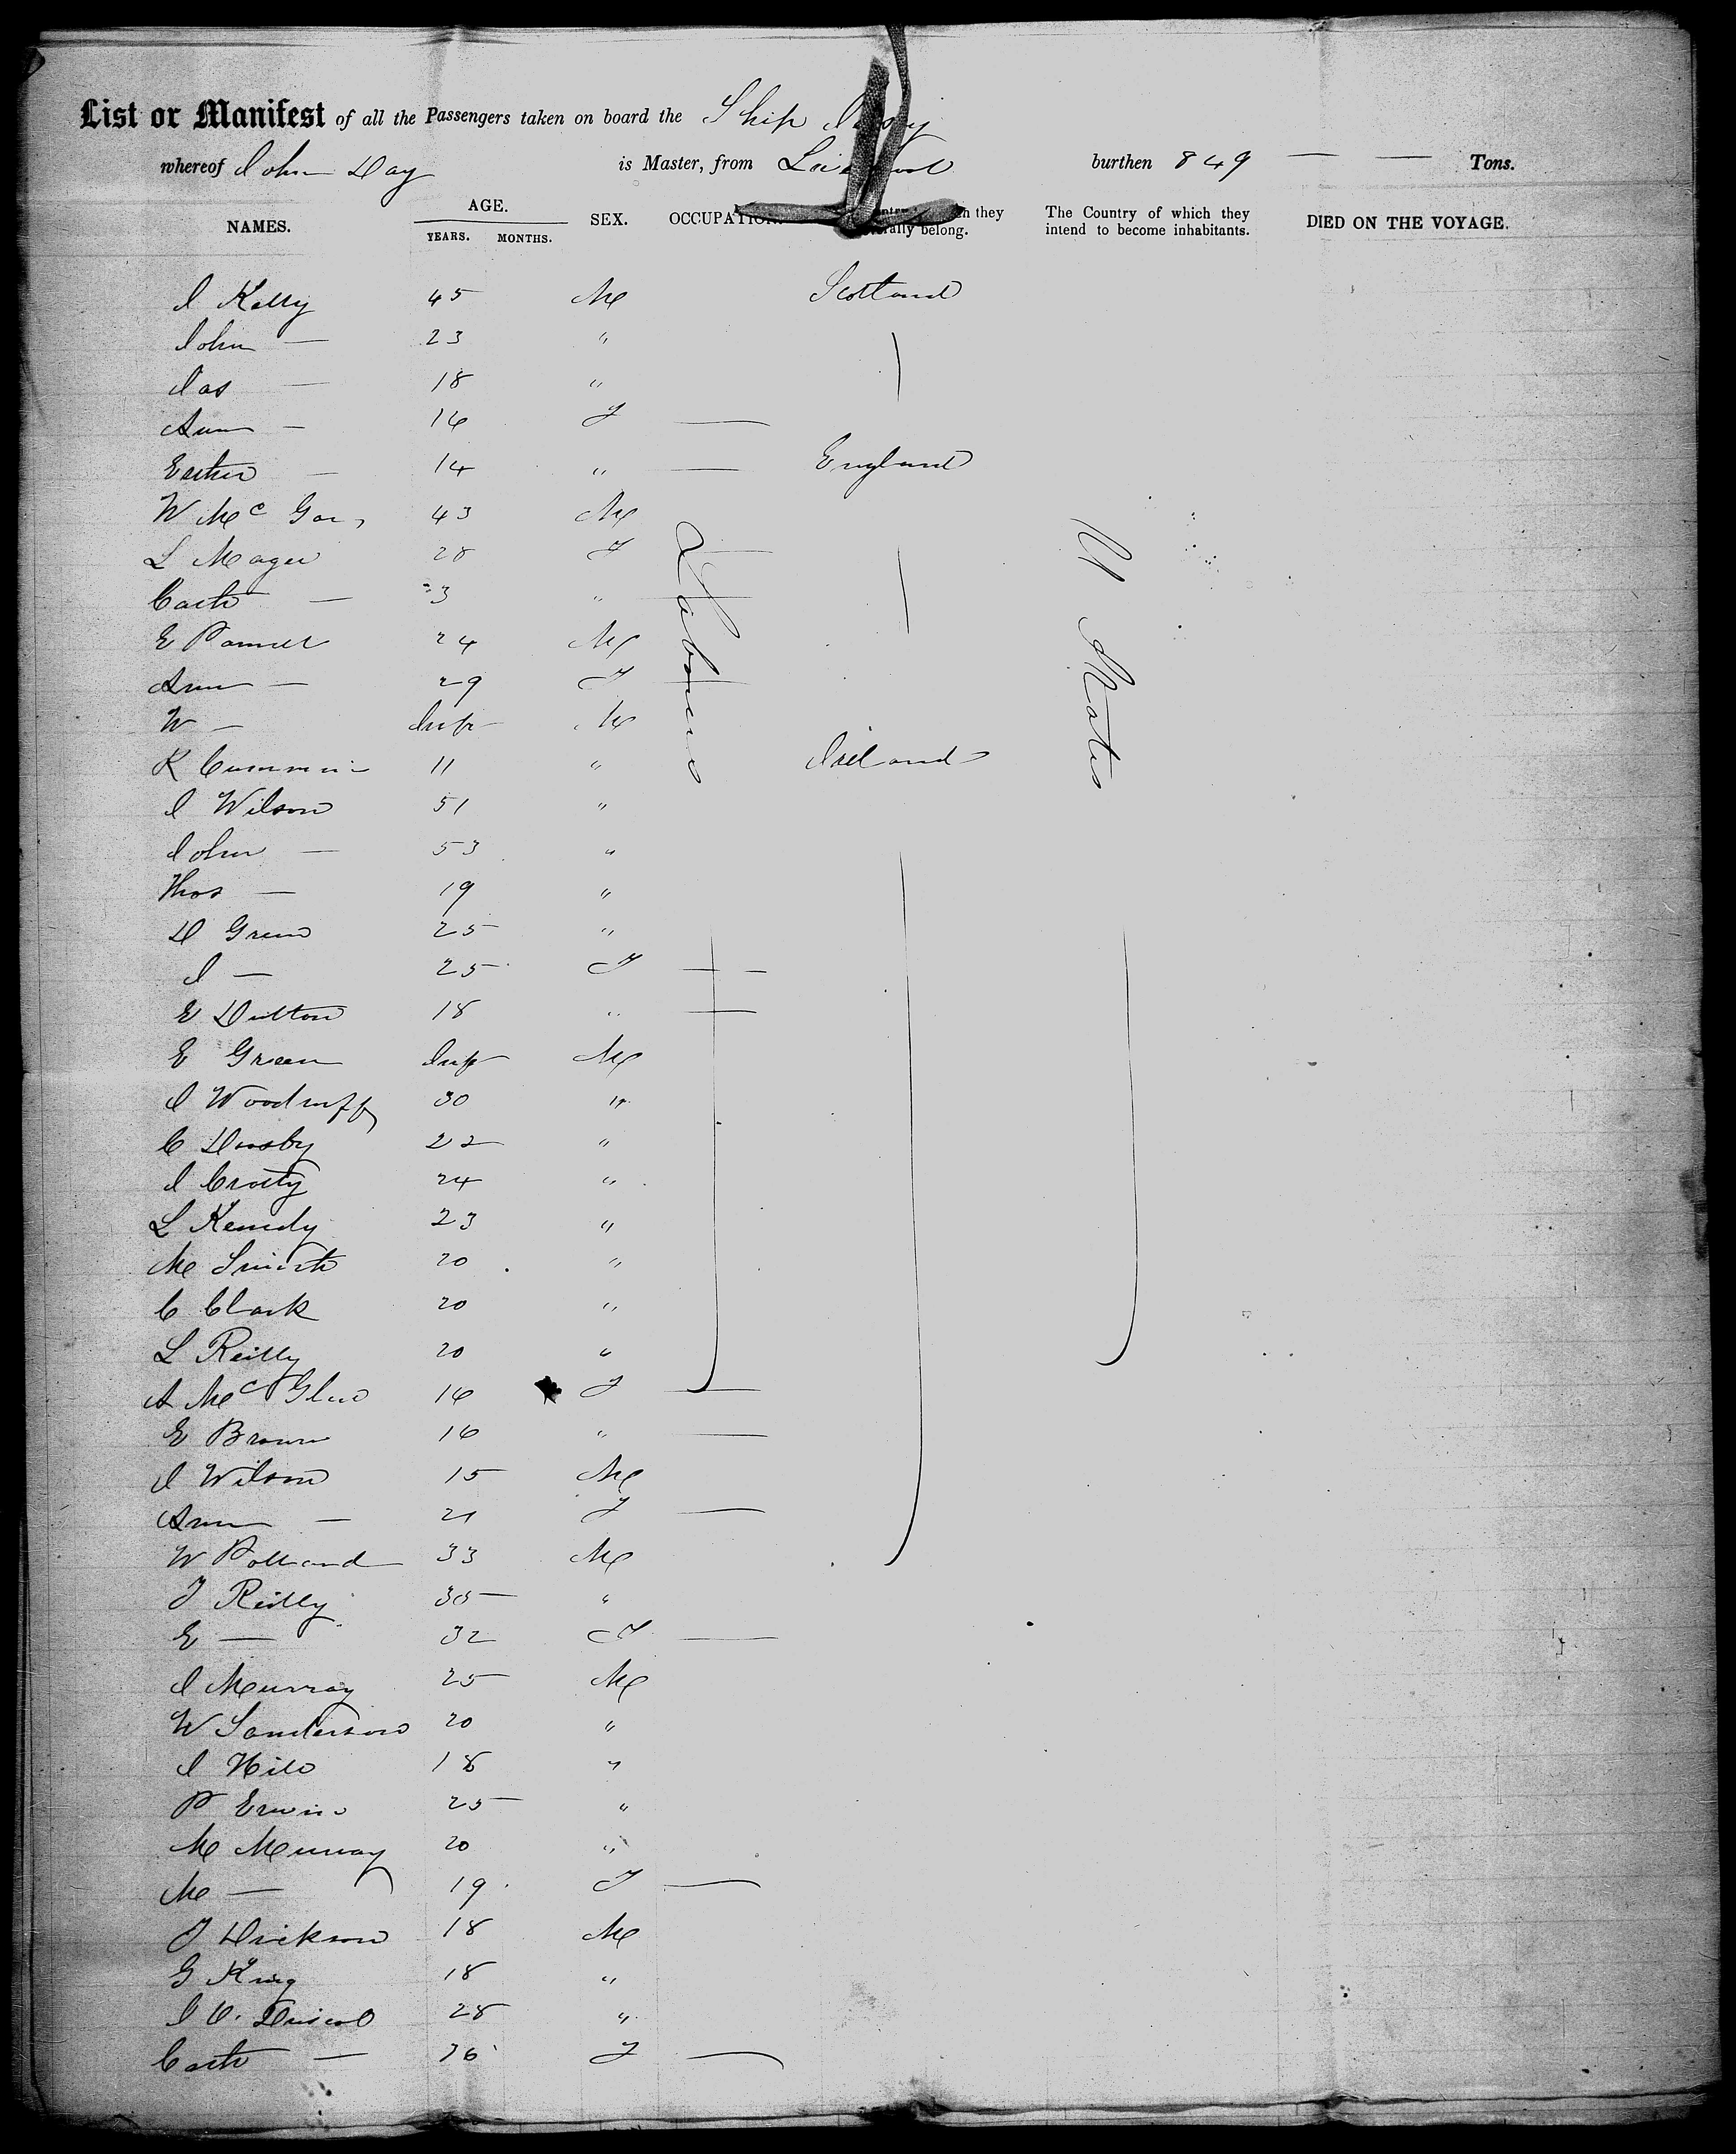 List or Manifest of all the Passengers taken on board the Ship
whereof John Day is Master, from burthen 849 — — Tons.
NAMES. AGE. YEARS. MONTHS. SEX. OCCUPATION. they belong. The Country of which they intend to become inhabitants. DIED ON THE VOYAGE.
J Kelly 45 M Scotland
John — 23 "
Jas — 18 "
Ann — 16 F —
Esther — 14 " — England
W Mc 43 M
L Mager 28 F —
Cath — 3 " —
E 24 M
Ann — 29 F —
W — Inft M
R Cummin 11 " Ireland
Labourers
U States
J Wilson 51 "
John — 53 "
Thos — 19 "
D Green 25 "
J — 25 F —
E Dutton 18 " —
E Green Inft M
J Woodruff 30 "
C 22 "
J Crotty 24 "
L Kennedy 23 "
M Smith 20 "
C Clark 20 "
L Reilly 20 "
A Mc Glue 16 F —
E Brown 16 " —
J Wilson 15 M
Ann — 21 F —
W 33 M
T Reilly 35 "
E — 32 F —
J Murray 25 M
W Sanderson 20 "
J Hill 18 "
P Erwin 25 "
M Murray 20 "
M — 19 F —
T Dickson 18 M
G King 18 "
J O. Driscol 28 "
Cath — 26 F —